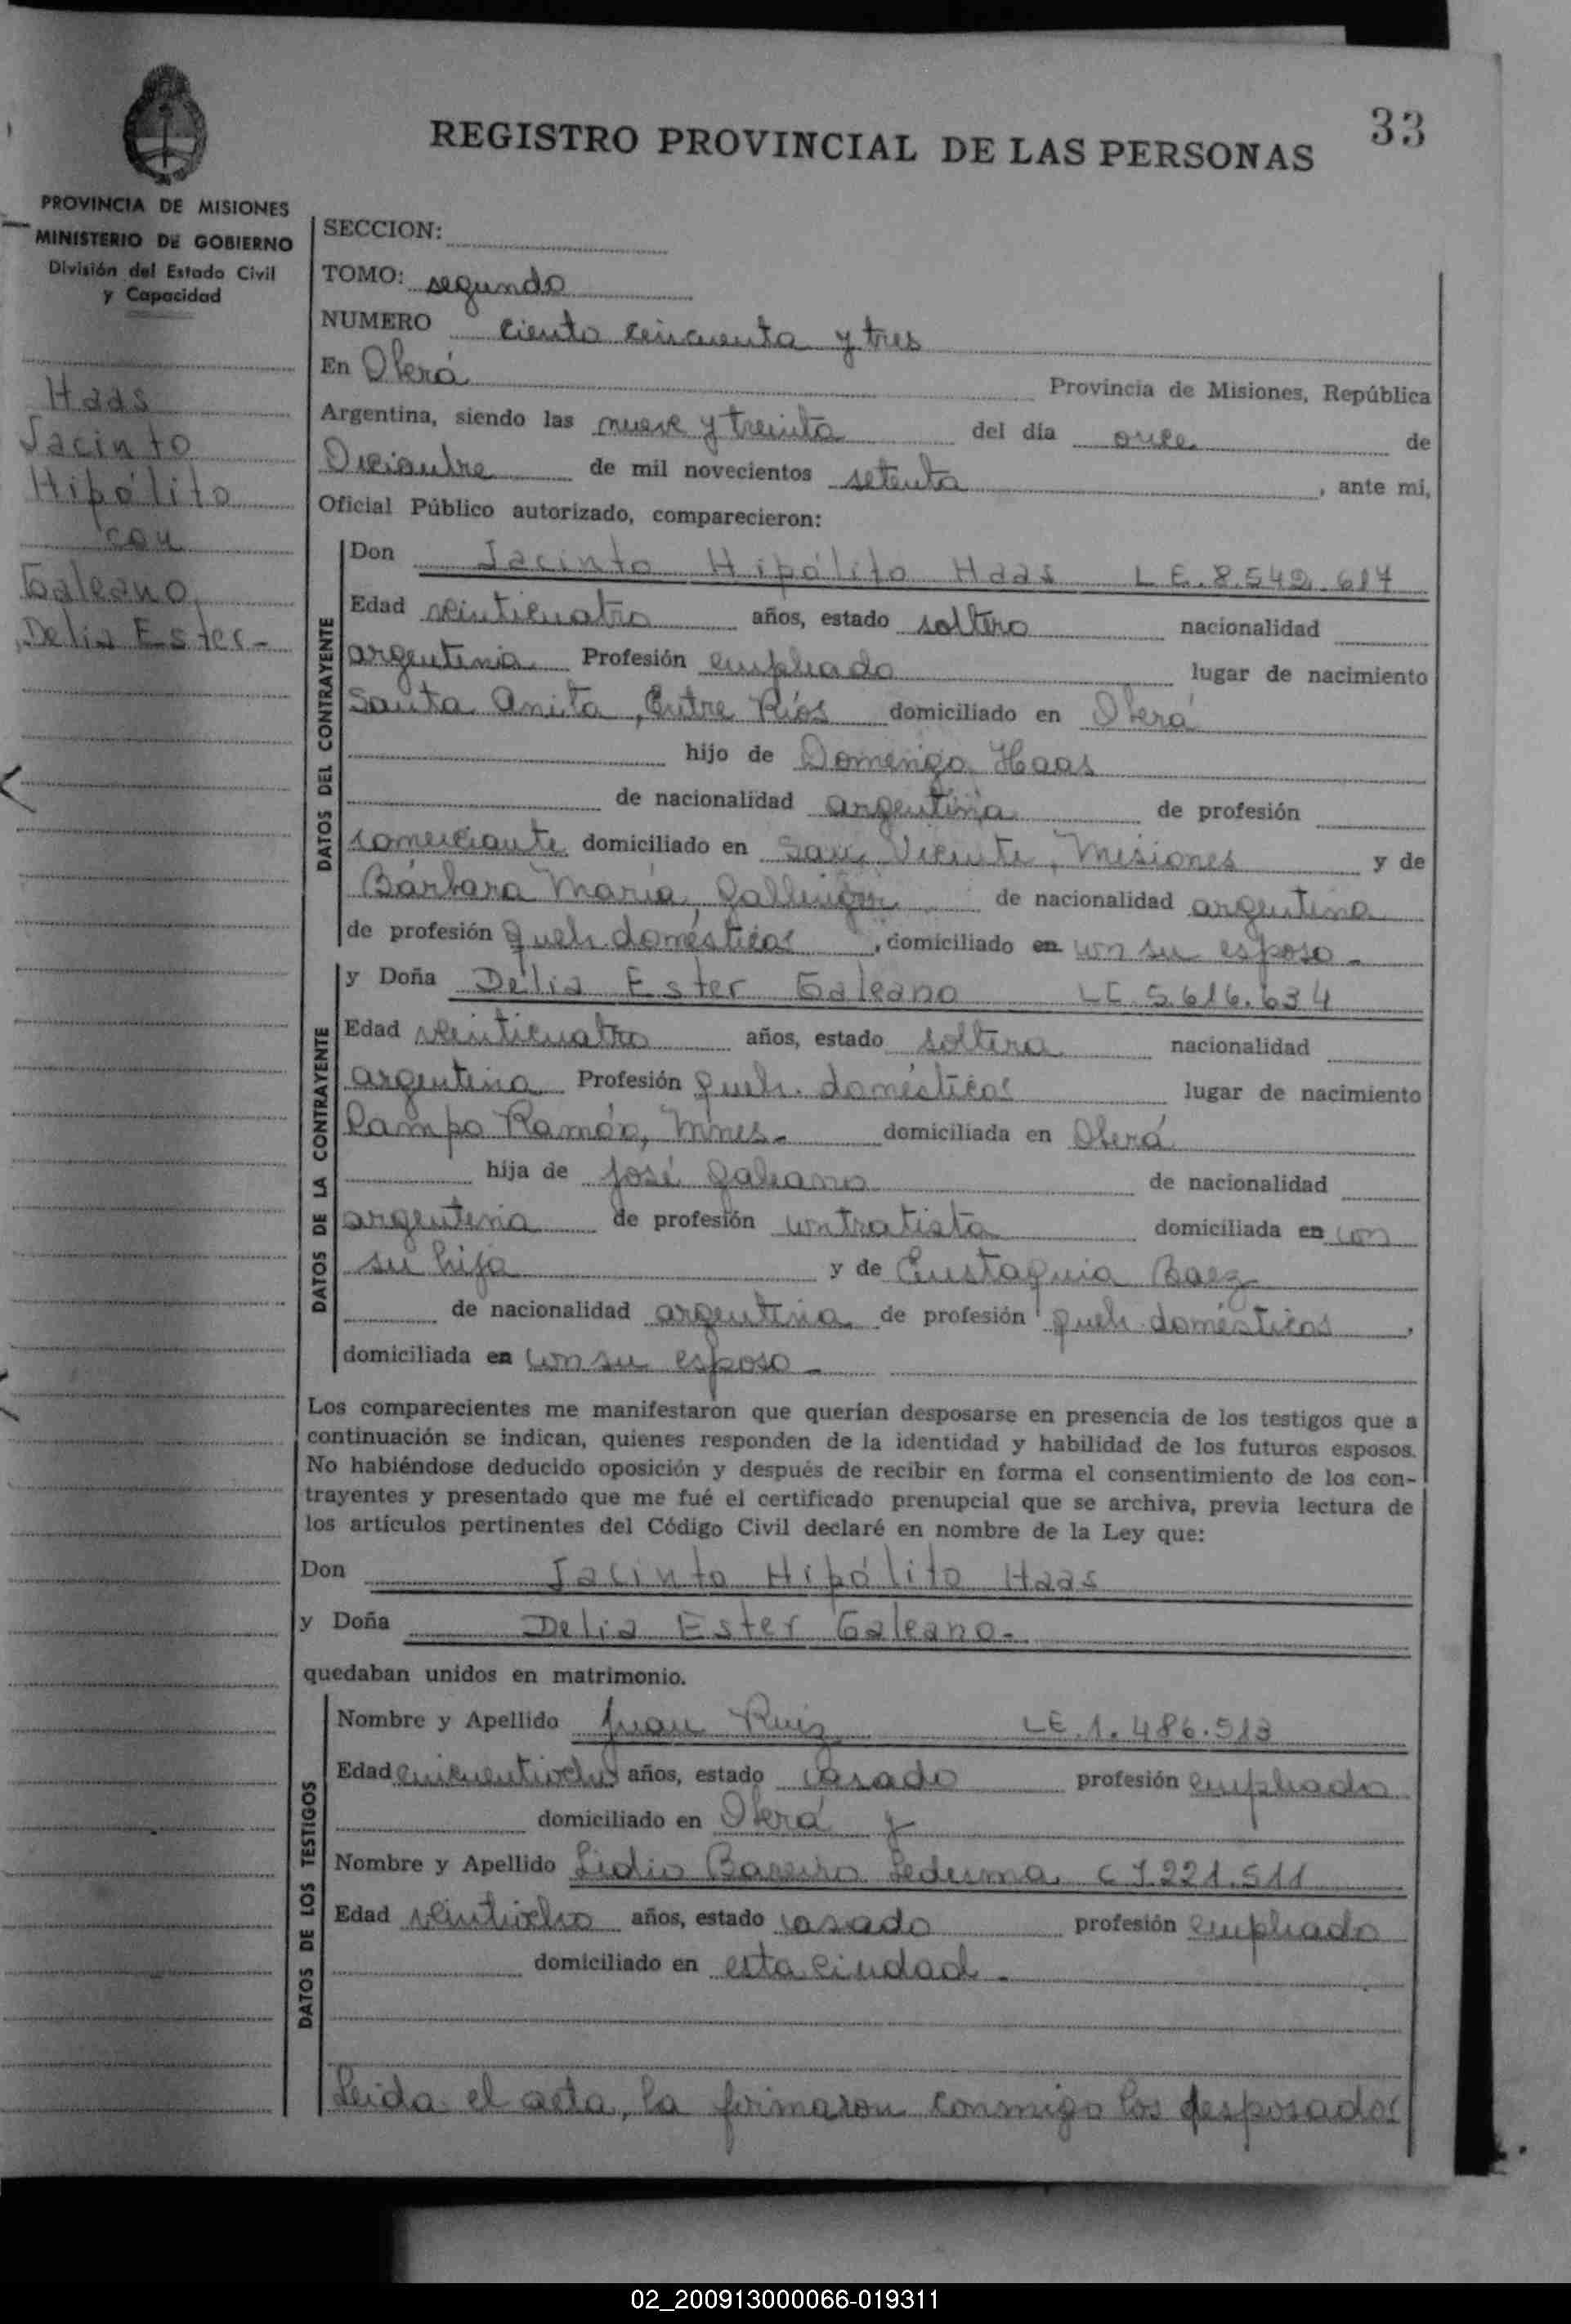 33
REGISTRO PROVINCIAL DE LAS PERSONAS
PROVINCIA DE MISIONES
MINISTERIO DE GOBIERNO
División del Estado Civil
y Capacidad
Haas
Jacinto
Hipólito
con
Galeano
Delia Ester-
SECCION:
TOMO: segundo
NUMERO ciento cincuenta y tres
En Oberá Provincia de Misiones, República
Argentina, siendo las nueve y treinta del día once de
Diciembre de mil novecientos setenta, ante mi,
Oficial Público autorizado, comparecieron:
DATOS DEL CONTRAYENTE
Don Jacinto Hipólito Haas L E. 8.542.617
Edad veinticuatro años, estado soltero nacionalidad
argentina Profesión empleado lugar de nacimiento
Santa Anita, Entre Ríos domiciliado en Oberá
hijo de Domingo Haas
de nacionalidad argentina de profesión
comerciante domiciliado en San Vicente, Misiones y de
Bárbara María de nacionalidad argentina
de profesión queh. domésticos, domiciliado en con su esposo-
DATOS DE LA CONTRAYENTE
y Doña Delia Ester Galeano LC. 5.616.634
Edad veinticuatro años, estado soltera nacionalidad
argentina Profesión queh. domésticos lugar de nacimiento
Campo Ramón, Mnes.- domiciliada en Oberá
hija de José Galeano de nacionalidad
argentina de profesión contratista domiciliada en con
su hija y de Eustaquia Baez
de nacionalidad argentina de profesión queh. domésticos,
domiciliada en con su esposo-
Los comparecientes me manifestaron que querían desposarse en presencia de los testigos que a
continuación se indican, quienes responden de la identidad y habilidad de los futuros esposos.
No habiéndose deducido oposición y después de recibir en forma el consentimiento de los con-
trayentes y presentado que me fué el certificado prenupcial que se archiva, previa lectura de
los artículos pertinentes del Código Civil declaré en nombre de la Ley que:
Don Jacinto Hipólito Haas
y Doña Delia Ester Galeano-
quedaban unidos en matrimonio.
DATOS DE LOS TESTIGOS
Nombre y Apellido Juan Ruiz LE. 1.486.513
Edad cincuentiocho años, estado casado profesión empleado
domiciliado en Oberá y
Nombre y Apellido Lidio Bareiro Ledesma, C I. 221.511
Edad veintiocho años, estado casado profesión empleado
domiciliado en esta ciudad-
Leida el acta, la firmaron conmigo los desposados
02_200913000066-019311